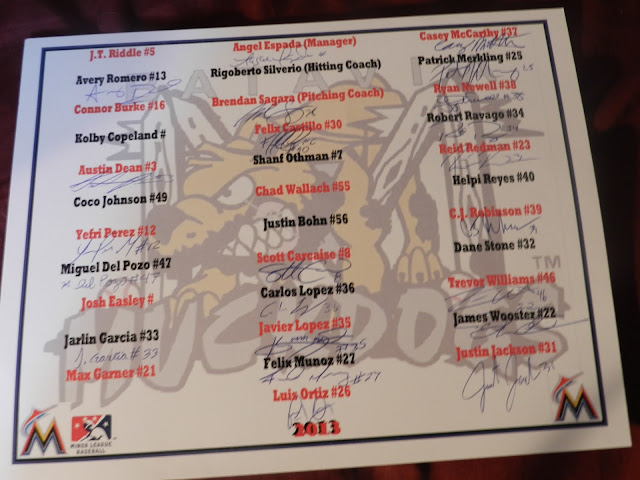 J.T. Riddle #5
Avery Romero #13
Connor Burke #16
Kolby Copeland #
Austin Dean #3
Coco Johnson #49
Yefri Perez #12
Miguel Del Pozo #47
Josh Easley #
Jarlin Garcia #33
J. Garcia #33
Max Garner #21
Angel Espada (Manager)
Rigoberto Silverio (Hitting Coach)
Brendan Sagara (Pitching Coach)
Felix Castillo #30
Shanf Othman #7
Chad Wallach #55
Justin Bohn #56
Scott Carcaise #8
Carlos Lopez #36
Javier Lopez #35
Felix Munoz #27
Luis Ortiz #26
2013
Casey McCarthy #37
Patrick Merkling #25
Ryan Newell #38
Robert Ravago #34
Reid Redman #23
Helpi Reyes #40
C.J. Robinson #39
Dane Stone #32
Trevor Williams #46
James Wooster #22
Justin Jackson #31
BATAVIA
MUCKDOGS
TM
MINOR LEAGUE
BASEBALL